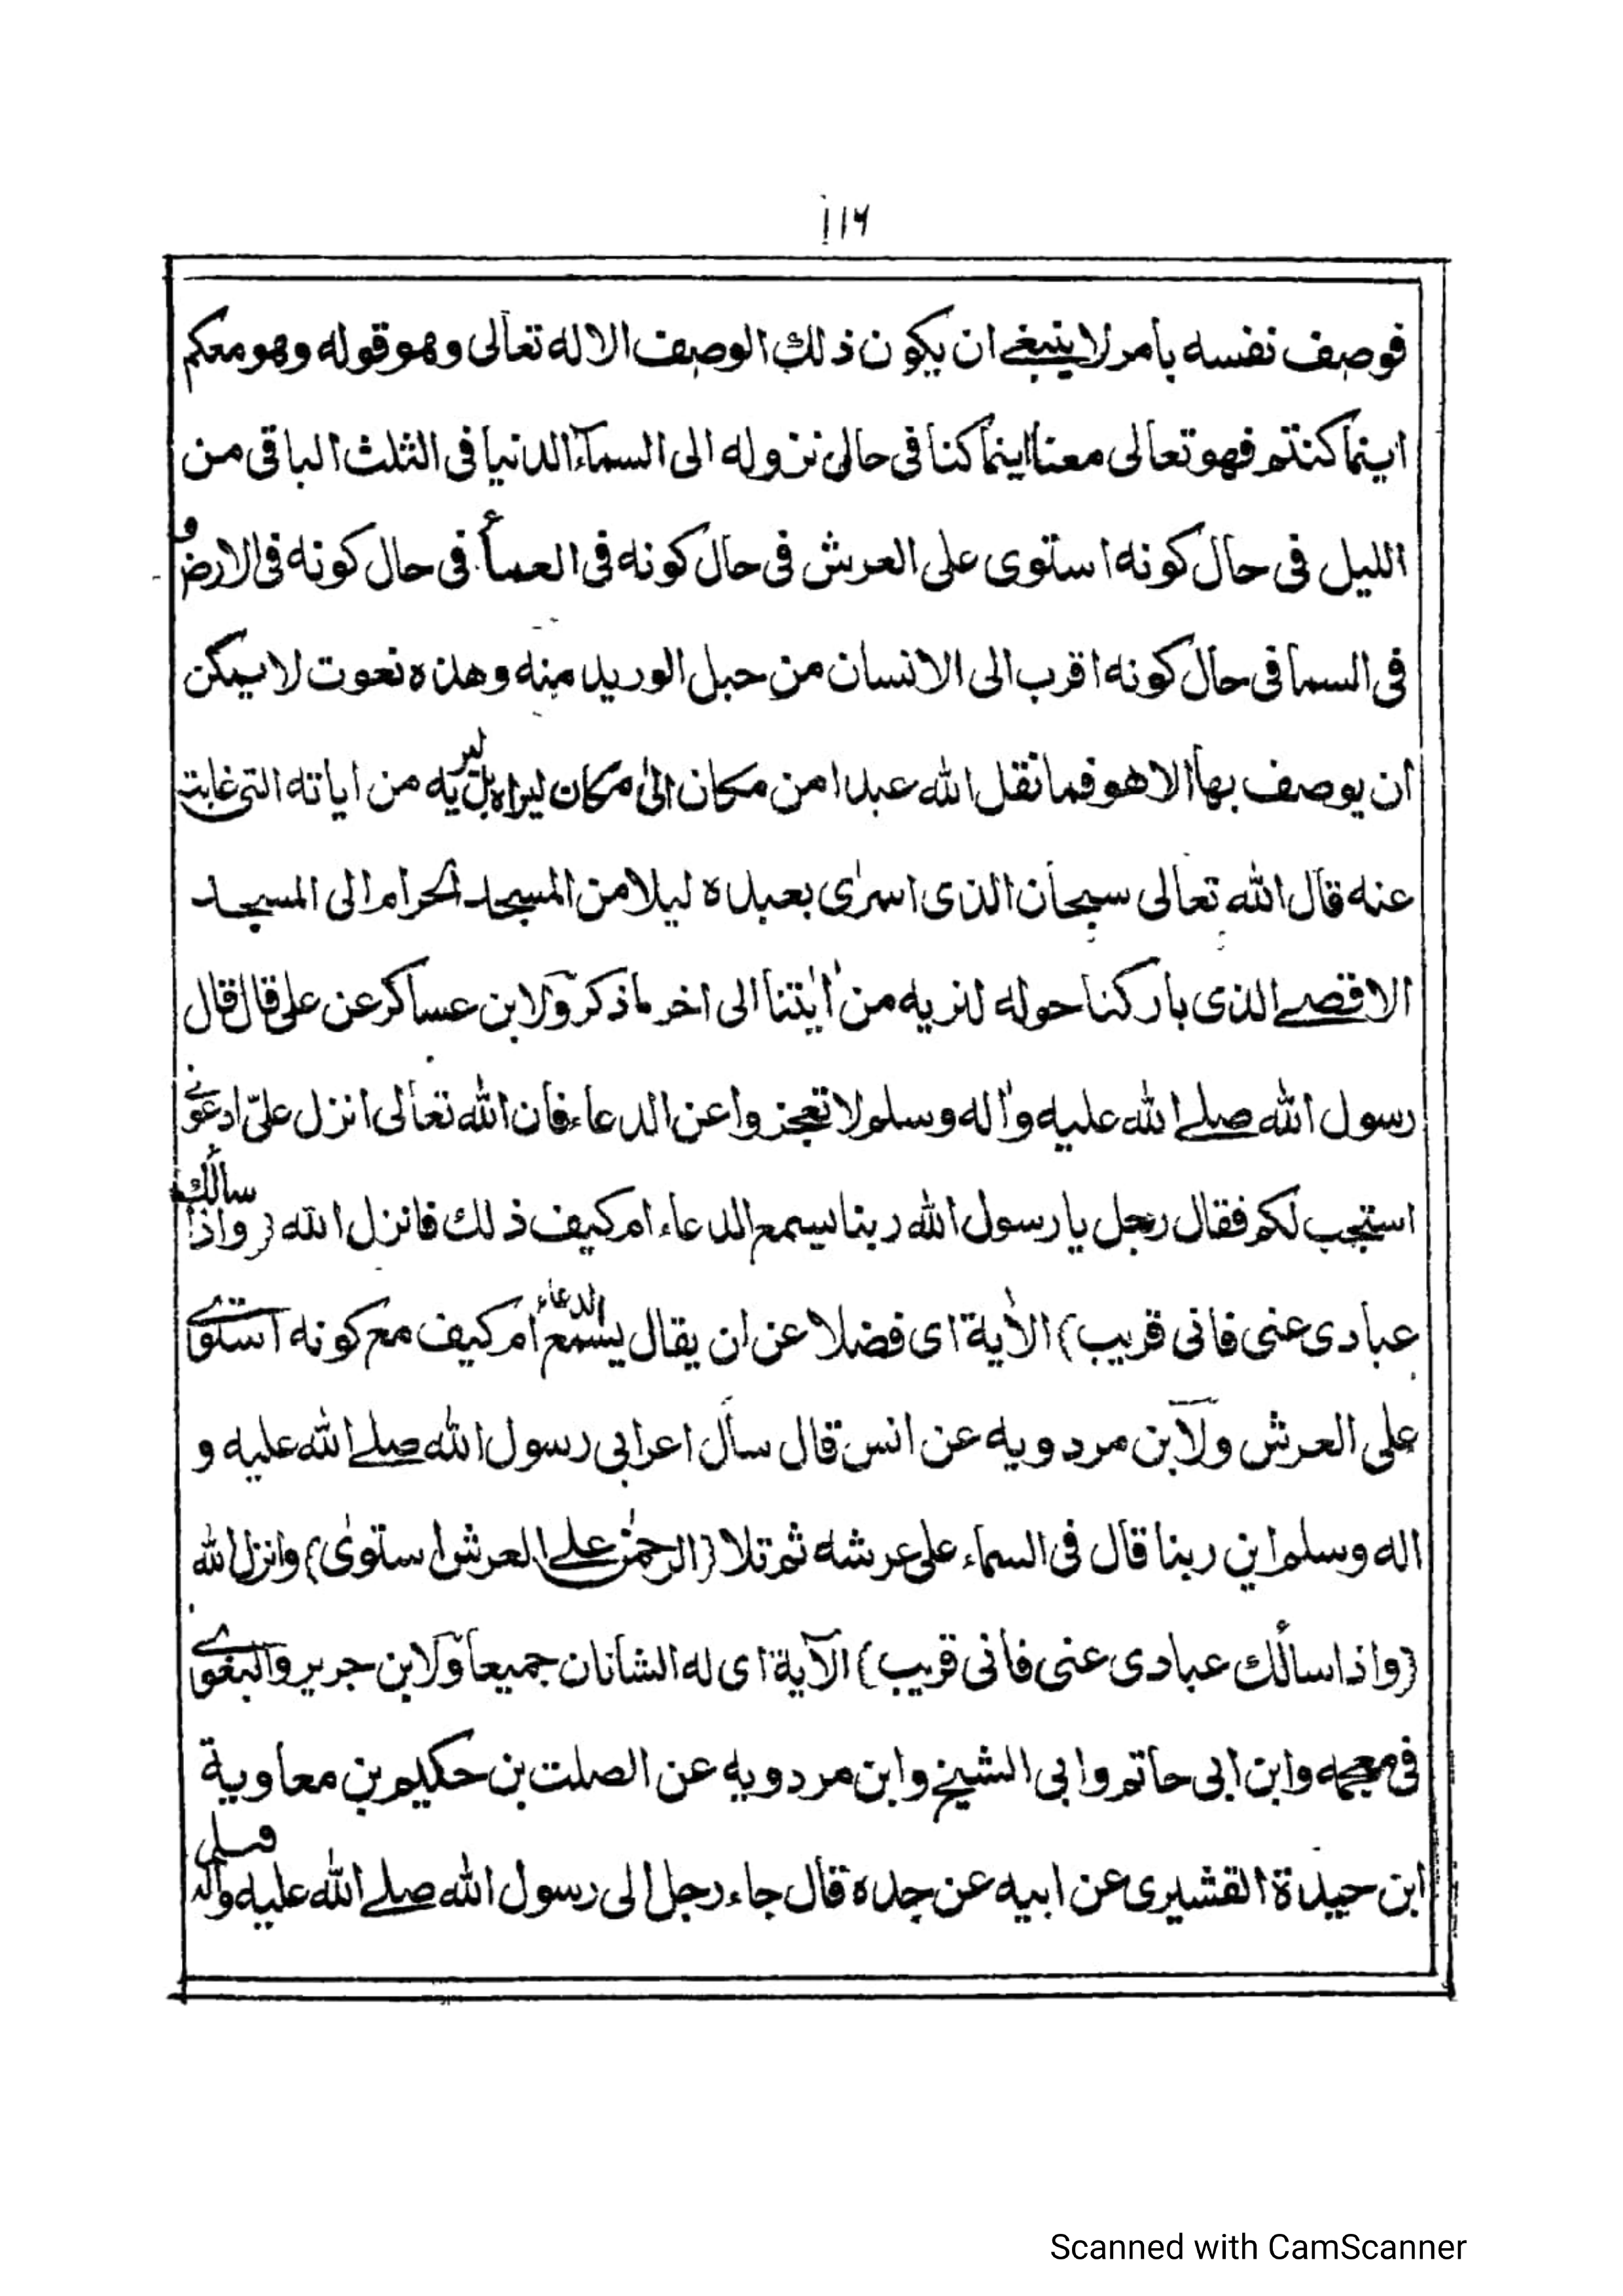 ١١٦
فوصف نفسه بأمر لا ينبغے ان يكون ذلك الوصف الا له تعالى وهو قوله وهو معكم
اينما كنتم فهو تعالى معنا اينما كنا فى حال نزوله الى السمآء الدنيا فى الثلث الباقى من
الليل فى حال كونه استوى على العرش فى حال كونه فى العمأ فى حال كونه فى الارض و
فى السما فى حال كونه اقرب الى الانسان من حبل الوريد منه وهذه نعوت لا يمكن
ان يوصف بها الا هو فما نقل الله عبدا من مكان الى مكان ليراه بل ليريه من اياته التى غابت
عنه قال الله تعالى سبحان الذى اسرٰى بعبده ليلا من المسجد الحرام الى المسجد
الاقصے الذى باركنا حوله لنريه من اٰيٰتنا الى اخر ما ذكر ولابن عساكر عن على قال قال
رسول الله صلے الله عليه واٰله وسلم لا تعجزوا عن الدعاء فان الله تعالى انزل علىّ ادعونے
استجب لكم فقال رجل يا رسول الله ربنا يسمع الدعاء ام كيف ذلك فانزل الله (واذا سألك
عبادى عنى فانى قريب) الاٰية اى فضلا عن ان يقال يسمع الدعاء ام كيف مع كونه استوے
على العرش ولابن مردويه عن انس قال سأل اعرابى رسول الله صلے الله عليه و
اله وسلم اين ربنا قال فى السماء على عرشه ثم تلا (الرحمٰن علے العرش استوىٰ) وانزل الله
(واذا سألك عبادى عنى فانى قريب) الآية اى له الشأنان جميعا ولابن جرير والبغوے
فى معجمه وابن ابى حاتم وابى الشيخ وابن مردويه عن الصلت بن حكيم بن معاوية
ابن حيدة القشيرى عن ابيه عن جده قال جاء رجل الى رسول الله صلے الله عليه وآله
Scanned with CamScanner